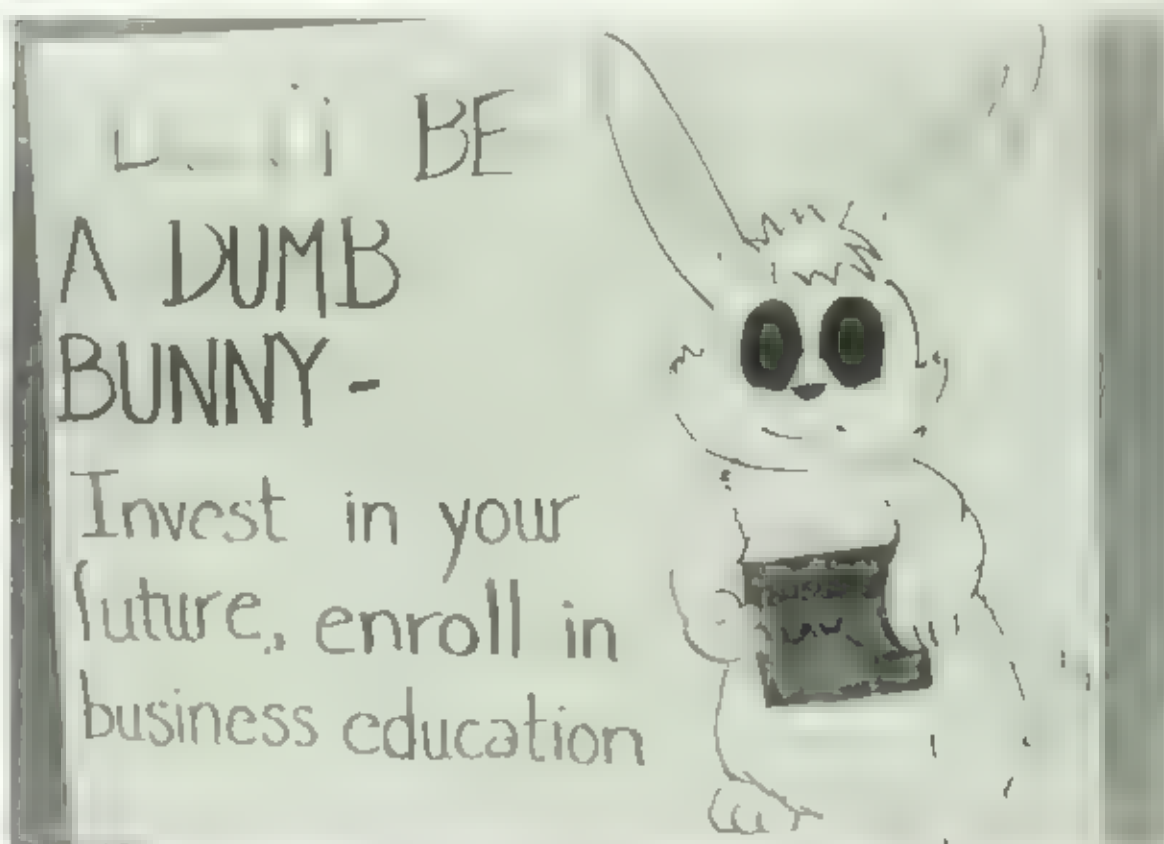 BE
A DUMB
BUNNY -
Invest in your
future, enroll in
business education